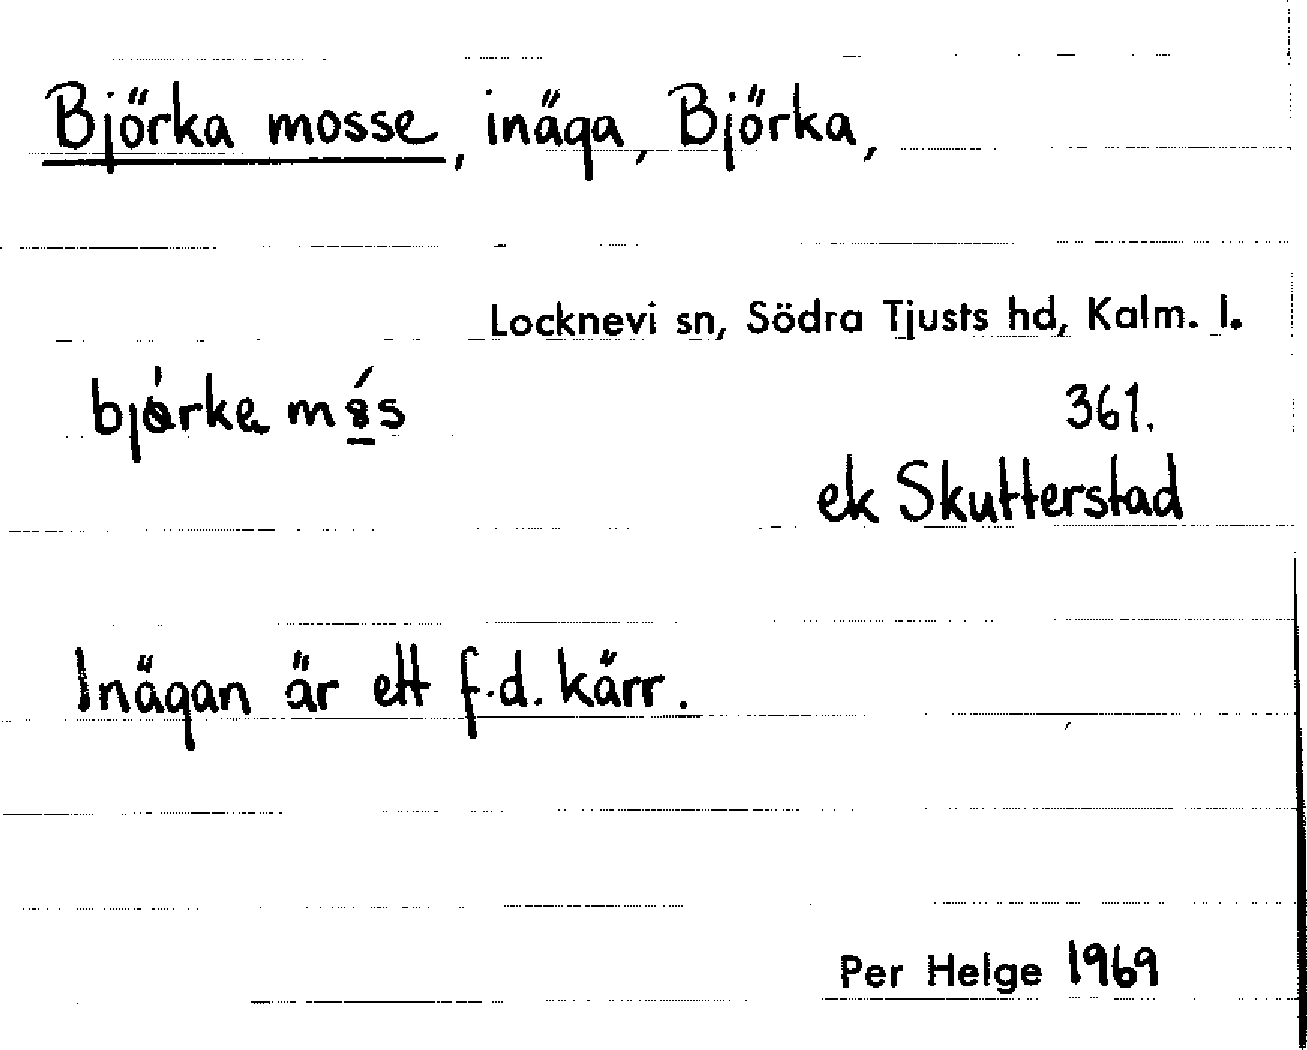 Björka mosse, inäga, Björka,
Locknevi sn, Södra Tjusts hd, Kalm. l.
361.
ek Skutterstad
Inägan är ett f.d. kärr.
Per Helge 1969